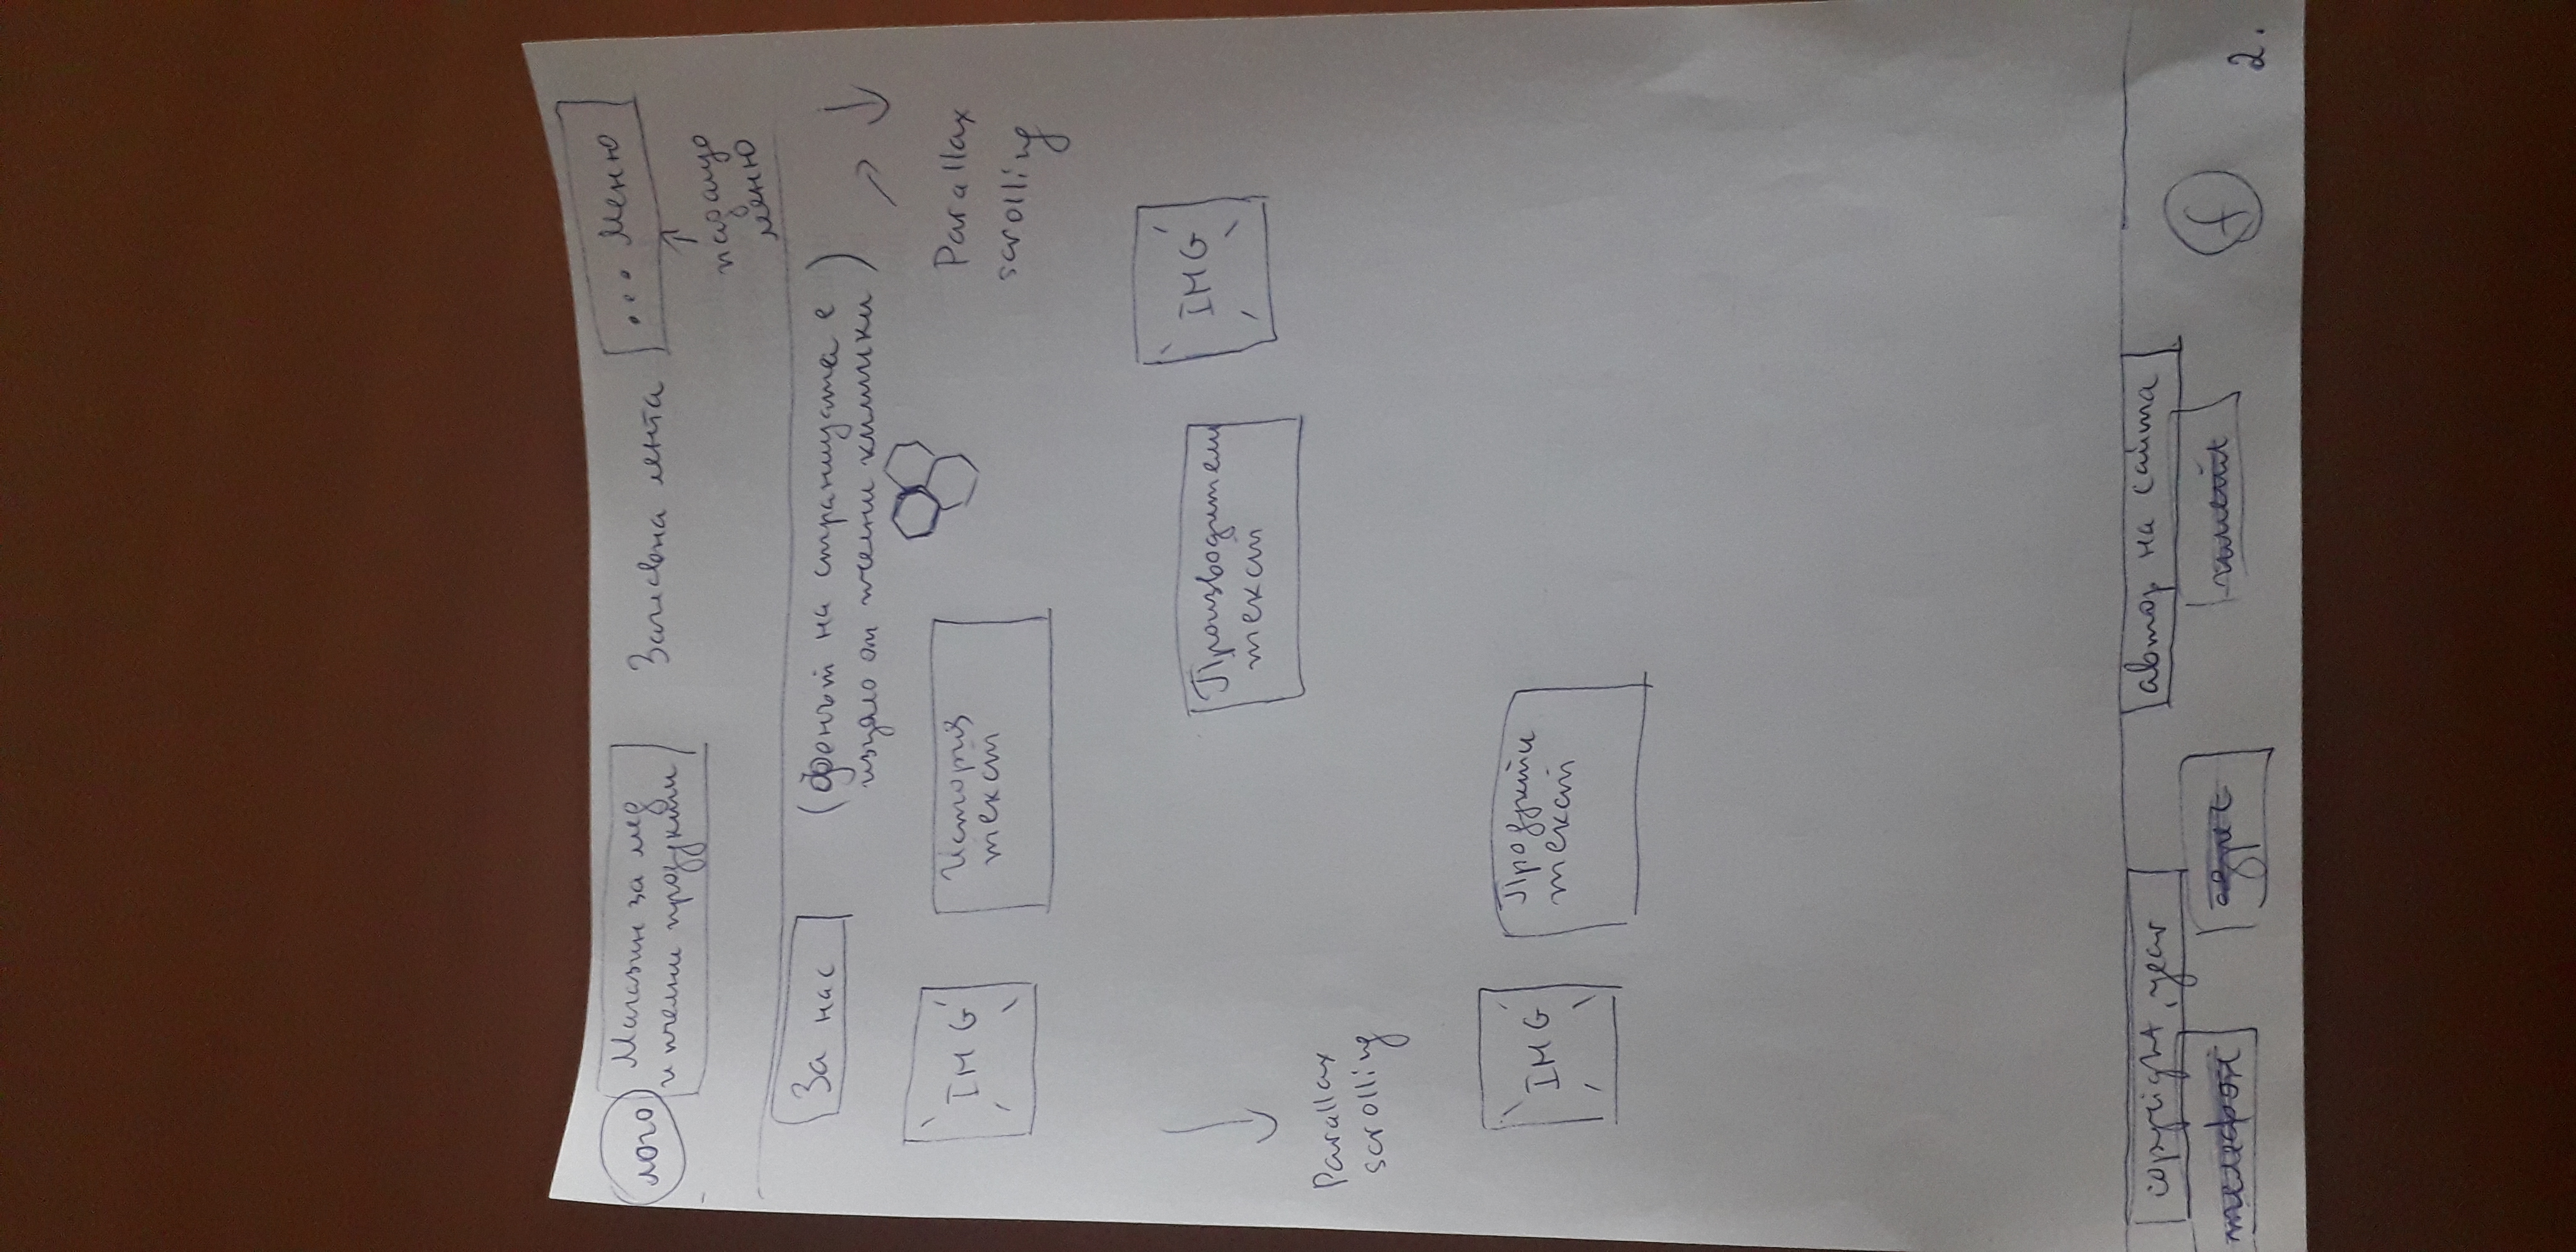 лого
Магазин за мед
и пчелни продукти
Заглавна лента
... Меню
падащо
меню
За нас
(фонът на страницата е
изцяло от пчелни килийки)
Parallax
scrolling
IMG
История
текст
Производители
текст
IMG
Parallax
scrolling
IMG
Продукти
текст
copyright, year
автор на сайта
телефон
адрес
имейл
f
2.